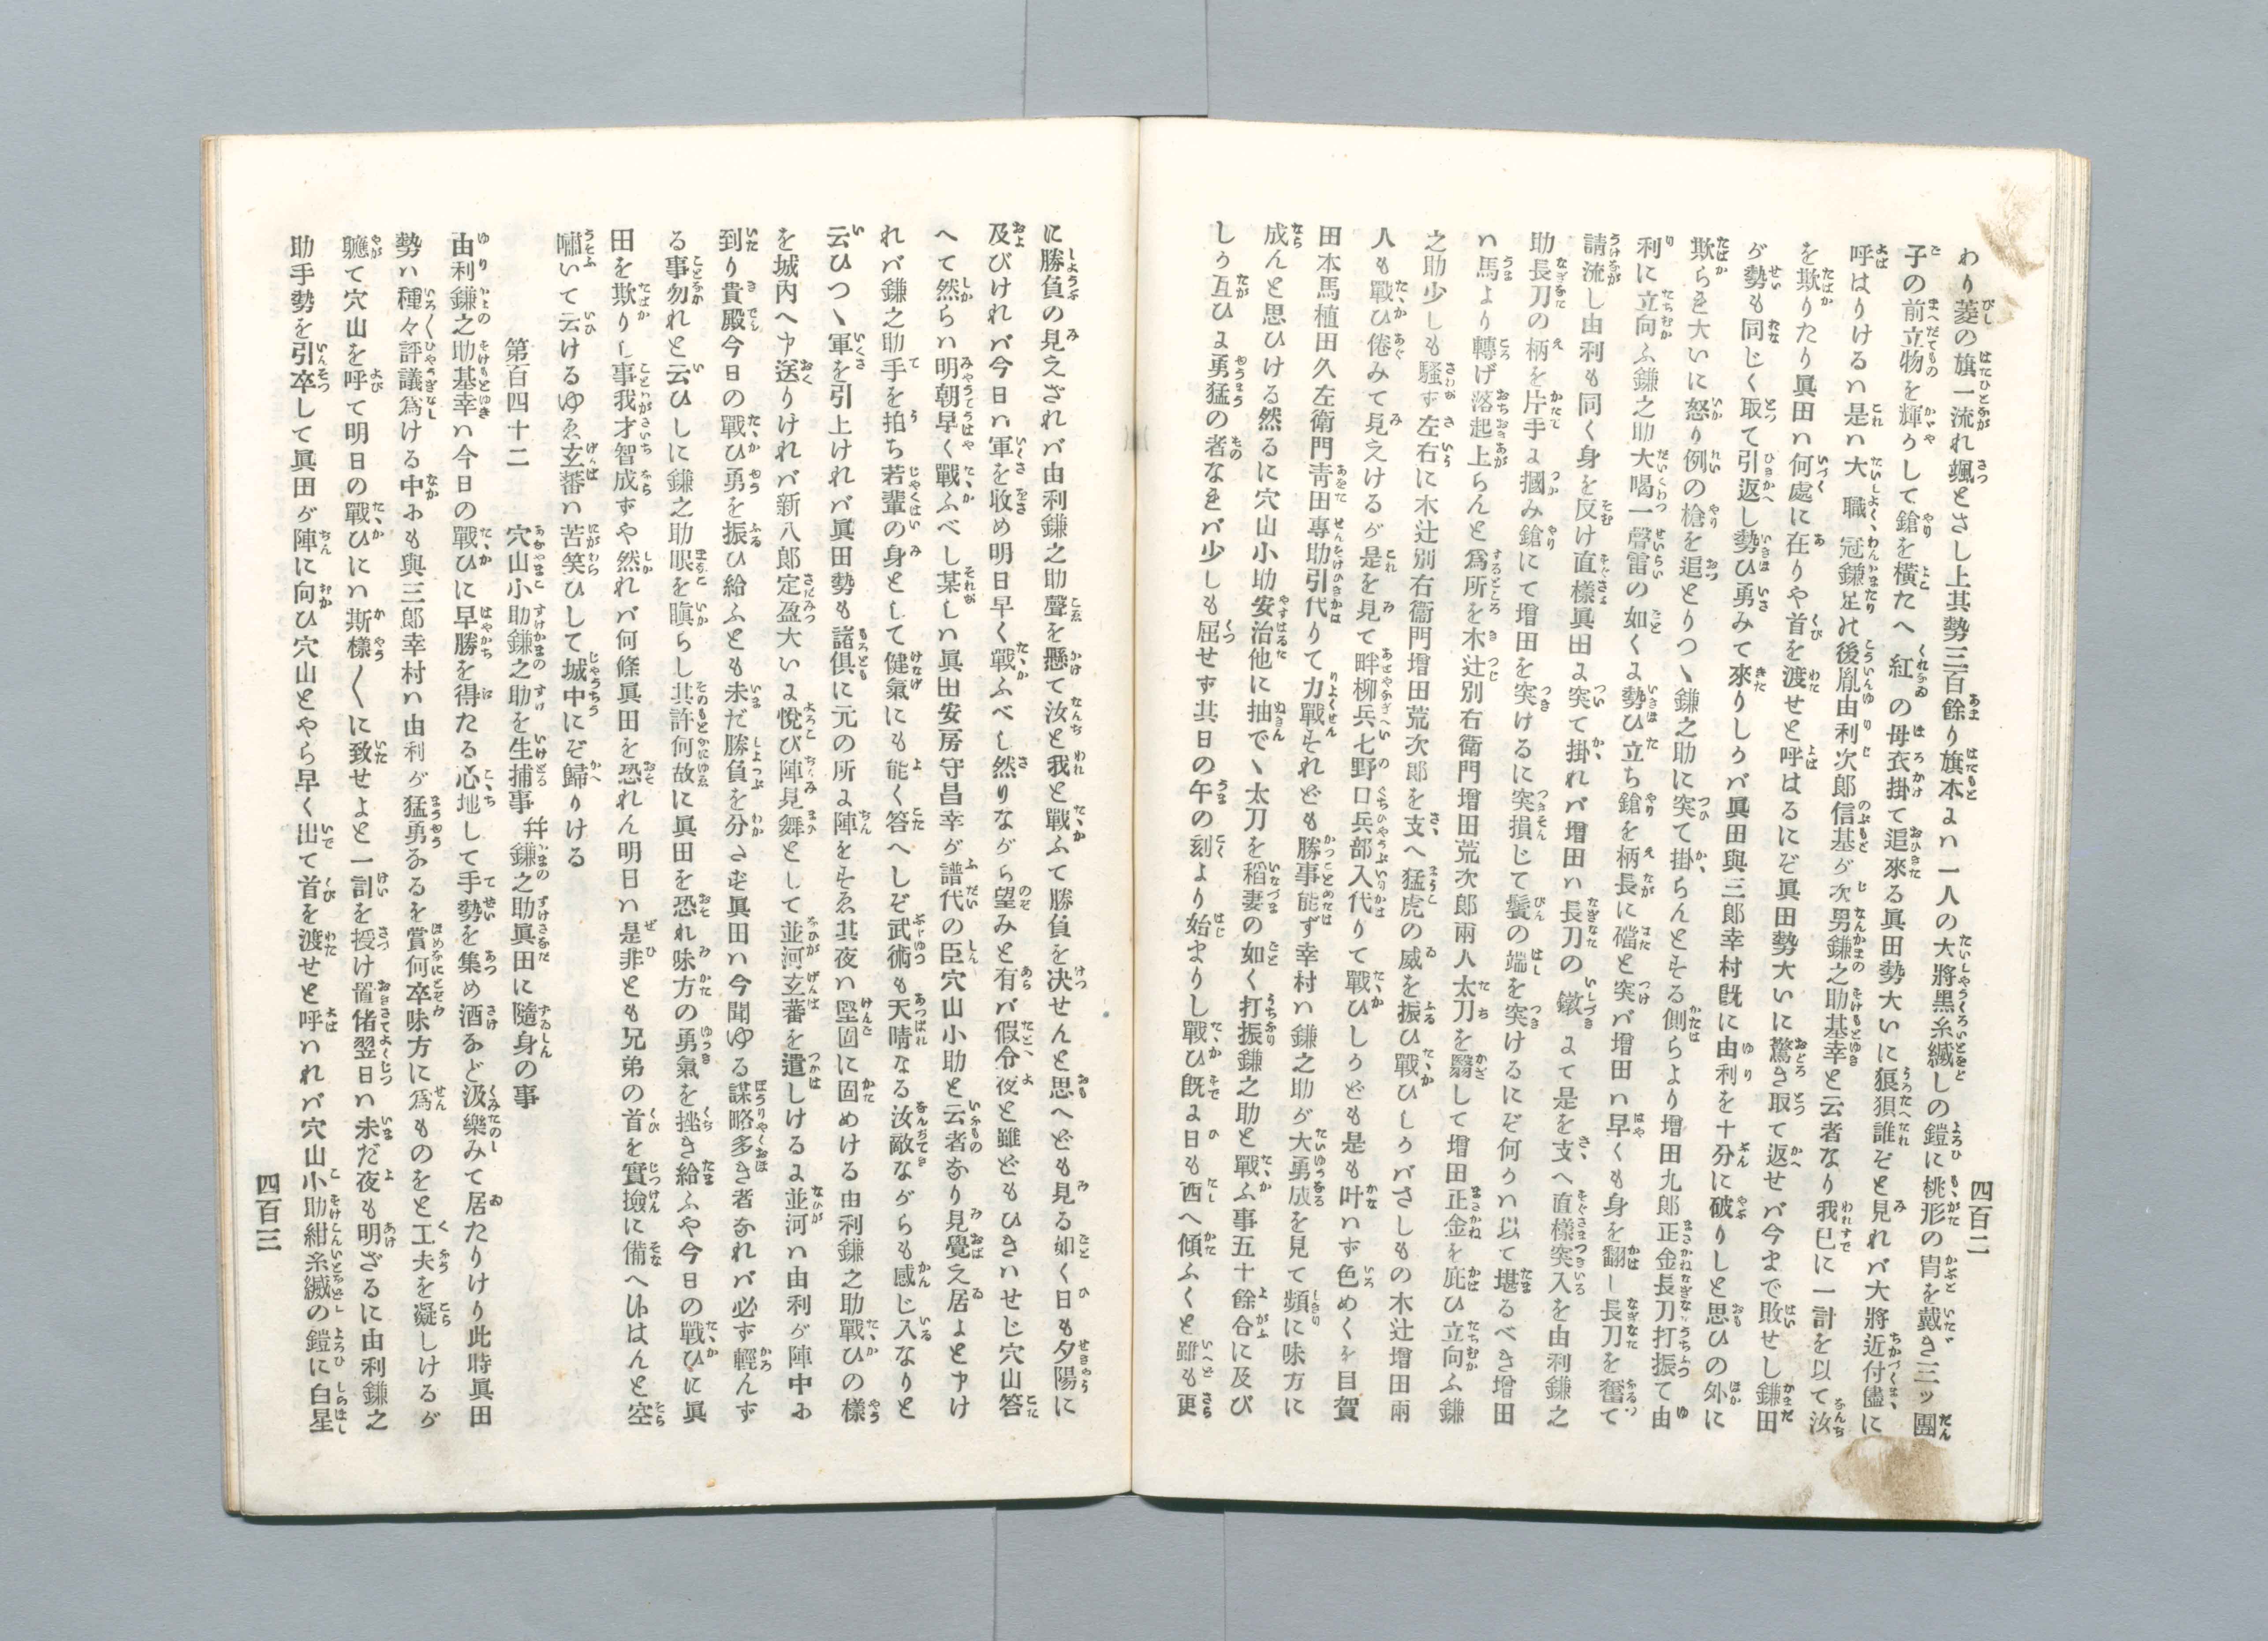 四百二
わり菱の旗一流れ颯とさし上其勢三百餘り旗本ゟハ一人の大將黒糸縅しの鎧に桃形の冑を戴き三ッ團
子の前立物を輝うして鎗を横たへ紅の母衣掛て追來る眞田勢大いに狼狽誰ぞと見れバ大將近付儘に
呼はりけるハ是ハ大職冠鎌足の後胤由利次郎信基が次男鎌之助基幸と云者なり我已に一計を以て汝
を欺りたり眞田ハ何處に在りや首を渡せと呼はるにぞ眞田勢大いに驚き取て返せバ今まで敗せし鎌田
が勢も同じく取て引返し勢ひ勇みて來りしうバ眞田與三郎幸村既に由利を十分に破りしと思ひの外に
欺らき大いに怒り例の槍を追とりつゝ鎌之助に突て掛らんとする側らより増田九郎正金長刀打振て由
利に立向ふ鎌之助大喝一聲雷の如くよ勢ひ立ち鎗を柄長に礑と突バ増田ハ早くも身を翻し長刀を奮て
請流し由利も同く身を反け直樣眞田よ突て掛れバ増田ハ長刀の鐓よて是を支へ直樣突入を由利鎌之
助長刀の柄を片手よ摑み鎗にて増田を突けるに突損じて鬢の端を突けるにぞ何うハ以て堪るべき増田
ハ馬より轉げ落起上らんと爲所を木辻別右衛門増田荒次郎兩人太刀を翳して増田正金を庇ひ立向ふ鎌
之助少しも騷ず左右に木辻別右衞門増田荒次郎を支へ猛虎の威を振ひ戰ひしうバさしもの木辻増田兩
人も戰ひ倦みて見えけるが是を見て畔柳兵七野口兵部入代りて戰ひしうども是も叶ハず色めくを目賀
田本馬植田久左衛門靑田專助引代りて力戰すれども勝事能ず幸村ハ鎌之助が大勇成を見て頻に味方に
成んと思ひける然るに穴山小助安治他に抽でゝ太刀を稻妻の如く打振鎌之助と戰ふ事五十餘合に及び
しう互ひよ勇猛の者なきバ少しも屈せず其日の午の刻より始まりし戰ひ既よ日も西へ傾ふくと雖も更
に勝負の見えざれバ由利鎌之助聲を懸て汝と我と戰ふて勝負を決せんと思へども見る如く日も夕陽に
及びけれバ今日ハ軍を收め明日早く戰ふべし然りながら望みと有バ假令夜と雖どもひきハせじ穴山答
へて然らハ明朝早く戰ふべし某しハ眞田安房守昌幸が譜代の臣穴山小助と云者なり見覺え居よと申け
れバ鎌之助手を拍ち若輩の身として健氣にも能く答へしぞ武術も天晴なる汝敵ながらも感じ入なりと
云ひつゝ軍を引上けれバ眞田勢も諸倶に元の所よ陣をすゑ其夜ハ堅固に固めける由利鎌之助戰ひの樣
を城内へ申送りけれバ新八郎定盈大いよ悅び陣見舞として並河玄蕃を遣しけるよ並河ハ由利が陣中ゟ
到り貴殿今日の戰ひ勇を振ひ給ふとも未だ勝負を分さず眞田ハ今聞ゆる謀略多き者なれバ必ず輕んず
る事勿れと云ひしに鎌之助眼を瞋らし其許何故に眞田を恐れ味方の勇氣を挫き給ふや今日の戰ひに眞
田を欺りし事我才智成ずや然れバ何條眞田を恐れん明日ハ是非とも兄弟の首を實撿に備へ申はんと空
嘯いて云けるゆゑ玄蕃ハ苦笑ひして城中にぞ歸りける
第百四十二　穴山小助鎌之助を生捕事幷鎌之助眞田に隨身の事
由利鎌之助基幸ハ今日の戰ひに早勝を得たる心地して手勢を集め酒など汲樂みて居たりけり此時眞田
勢ハ種々評議爲ける中ゟも與三郎幸村ハ由利が猛勇なるを賞何卒味方に爲ものをと工夫を凝しけるが
軈て穴山を呼て明日の戰ひにハ斯樣〱に致せよと一計を授け置偖翌日ハ未だ夜も明ざるに由利鎌之
助手勢を引卒して眞田が陣に向ひ穴山とやら早く出て首を渡せと呼ハれバ穴山小助紺糸縅の鎧に白星
四百三